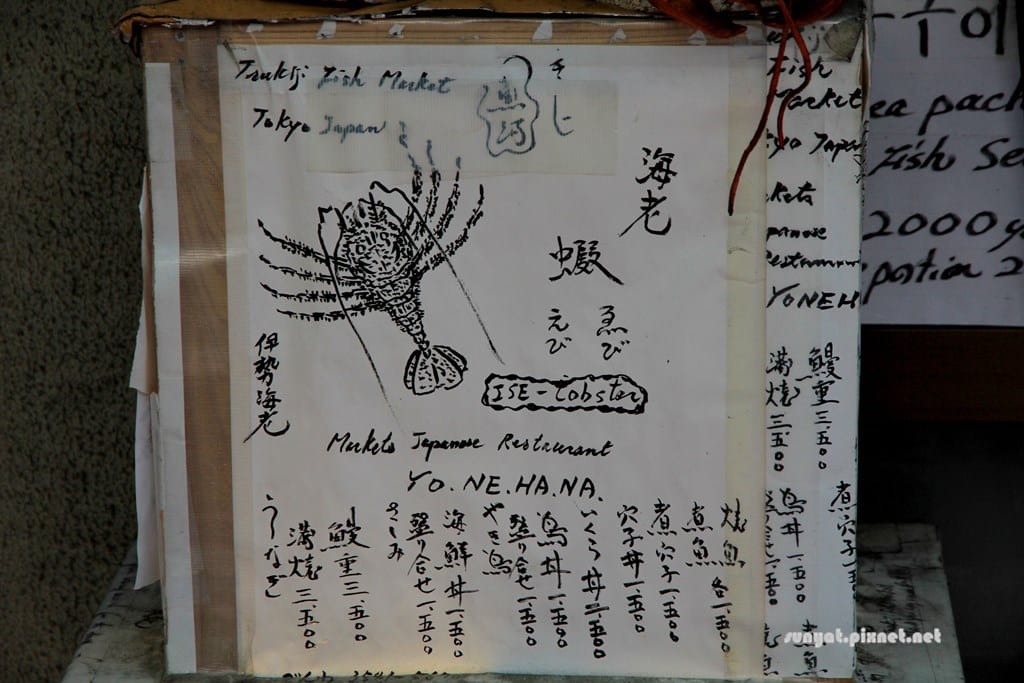 Tsukiji Fish Market
Tokyo Japan
きじ
海老
蝦
ゑび
えび
ISE-Lobster
伊勢海老
Markets Japanese Restaurant
YO.NE.HA.NA.
焼魚 各一、五〇〇
煮魚
煮穴子一、五〇〇
穴子丼一、五〇〇
いくら丼二、五〇〇
鳥丼一、五〇〇
盛り合せ一、五〇〇
やき鳥
海鮮丼一、五〇〇
盛り合せ一、五〇〇
さしみ
鰻重三、五〇〇
蒲焼三、五〇〇
うなぎ
Fish
Market
Japan
YONEH
鰻重三、五〇〇
蒲焼三、五〇〇
煮穴子一
鳥丼一、五〇〇
煮魚
ea pack
Fish Se
2000y
portion 2
sunyat.pixnet.net